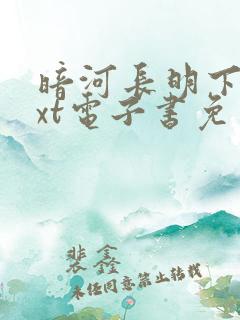 暗河长明下
xt电子书免
裴鑫
未经同意禁止转载